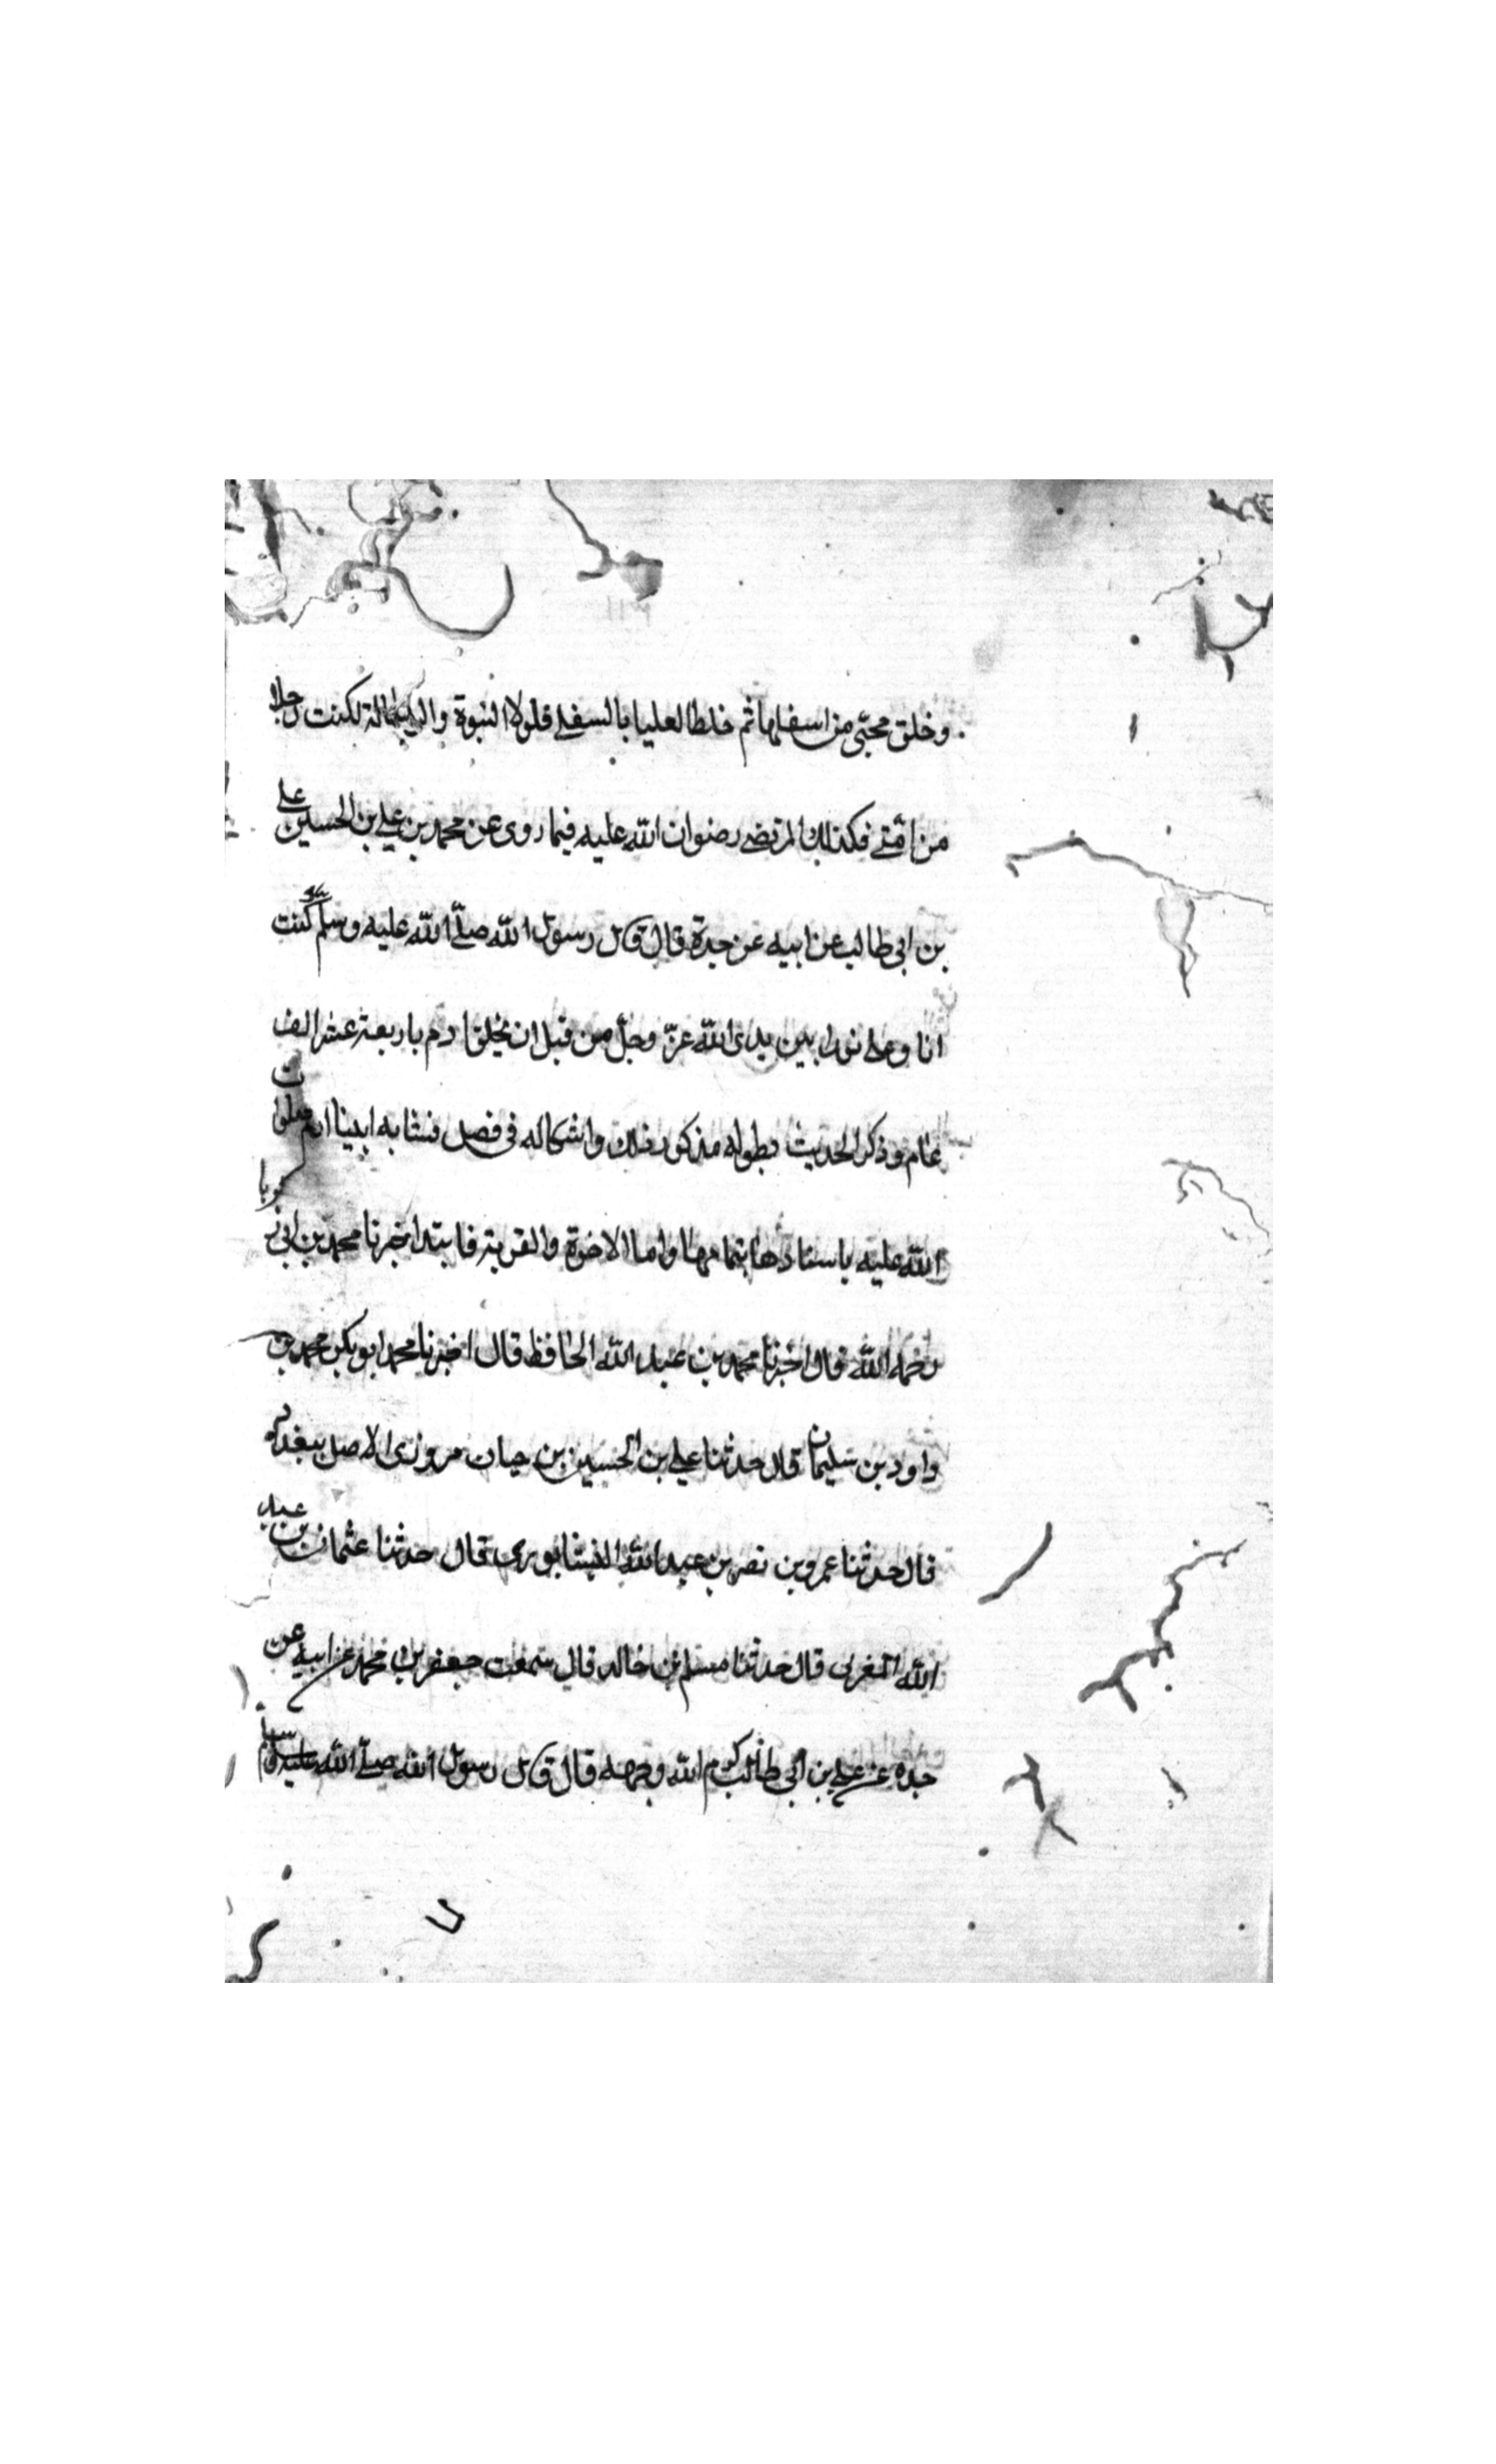 وخلق محبّي من اسفلها ثم خلط العليا بالسفلى فلولا النبوة والرسالة لكنت رجلا
من امّتي فكذلك المرتضى رضوان الله عليه فيما روى عن محمد بن علي بن الحسين علي
بن ابي طالب عن ابيه عن جدة قال قال رسول الله صلّى الله عليه وسلم كنت
انا وعلى نورا بين يدى الله عزّ وجلّ من قبل ان يخلق ادم باربعة عشر الف
عام وذكر الحديث بطوله مذكور فى ذلك واشكاله فى فصل مشابه ابينا ادم صلوات
الله عليه باسنادها بتمامها واما الاخوة والقربة فابتدا اخبرنا محمد بن ابى زكريا
رحمه الله قال اخبرنا محمد بن عبد الله الحافظ قال اخبرنا محمد ابو بكر بن محمد بن
داود بن سليمان قال حدثنا علي بن الحسين بن حيان مروزى الاصل ببغداد
قال حدثنا عمرو بن نصر بن عبد الله النيشابورى قال حدثنا عثمان بن عبد
الله المغربى قال حدثنا مسلم بن خالد قال سمعت جعفر بن محمد عن ابيه عن
جده عن علي بن ابي طالب كرم الله وجهه قال قال رسول الله صلّى الله عليه وسلم